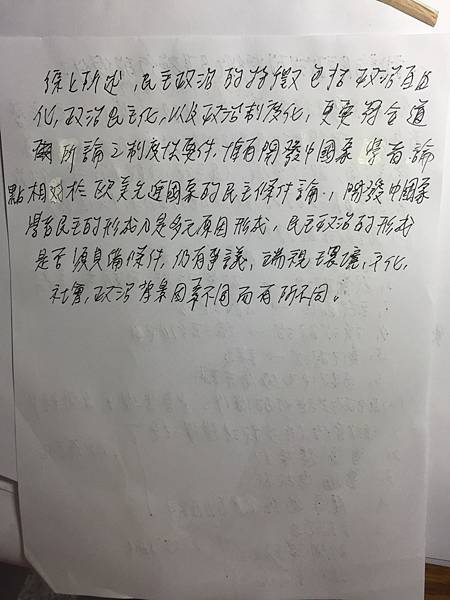 綜上所述，民主政治的特徵包括政治百姓
化，政治民主化，以及政治制度化，更要符合道
爾所論之制度性要件，惟有開發中國家學者論
點相對於歐美先進國家的民主條件論，開發中國家
學者民主的形成乃是多元原因形成，民主政治的形成
是否須具備條件，仍有爭議，端視環境，文化，
社會，政治背景因素不同而有所不同。